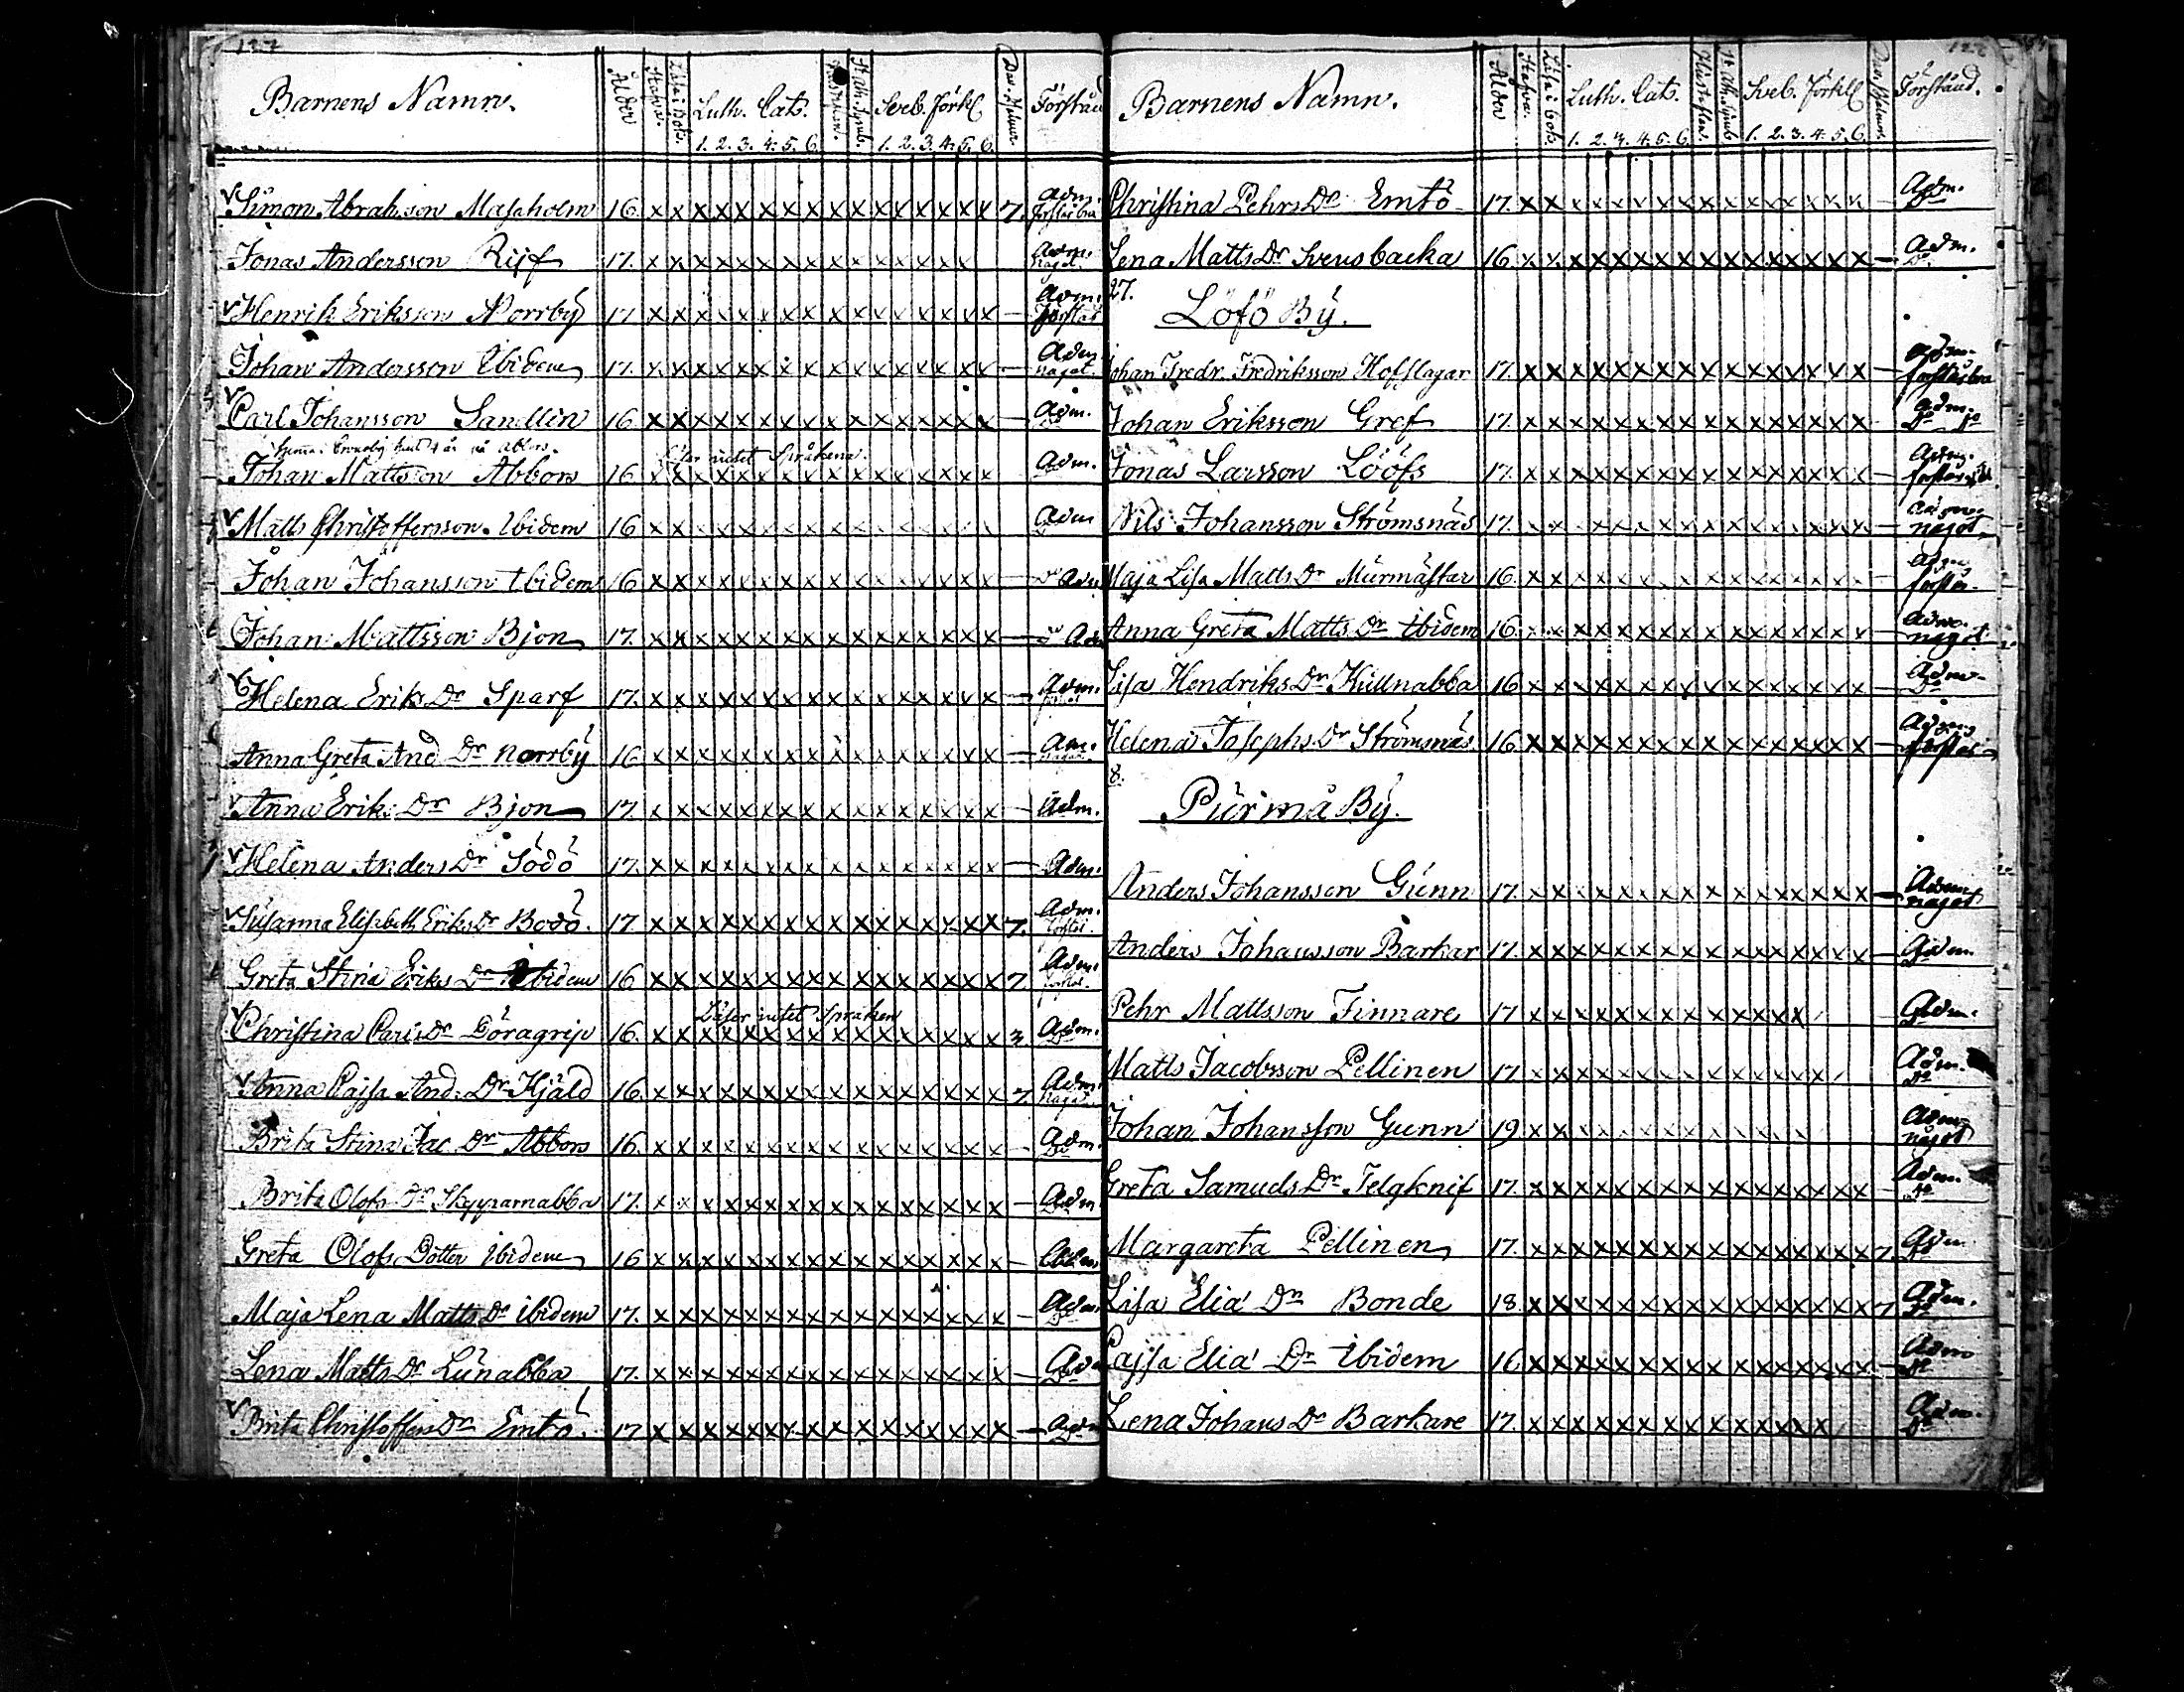 127
Barnens Namn. Ålder Stafvar. Läsa i Bok. Luth. Cats. 1. 2. 3. 4. 5. 6. St. Ath. Symb. Sveb. Förkl. 1. 2. 3. 4. 5. 6. Dav. Psalmer. Förstånd
Simon Abrahsson Masaholm 16 x x x x x x x x x x x x x x x 7 Adm. förstår bra
Jonas Andersson Rijf 17. x x x x x x x x x x x x x x Adm. något.
Henrik Eriksson Norrbÿ 17 x x x x x x x x x x x x x x x — Adm. förstår
Johan Andersson Ibidem 17. x x x x x x x x x x x x x x x — Adm. något.
Carl Johansson Sandlin 16 x x x x x x x x x x x x x x x — Adm.
Läser intet Språkena.
Johan Mattsson Abbors 16 x x x x x x x x x x x x x x x Adm.
Matts Christoffersson. Ibidem 16 x x x x x x x x x x x x x x x Adm
Johan Johansson Ibidem 16 x x x x x x x x x x x x x x x — Adm
Johan Mattsson Bjon 17. x x x x x x x x x x x x x x x — Adm
Helena Eriks Dr Sparf 17. x x x x x x x x x x x x x x x — Adm.
Anna Greta And Dr Norrbÿ 16 x x x x x x x x x x x x x x x — Am.
Anna Eriks Dr Bjon 17. x x x x x x x x x x x x x x x — Adm.
Helena Anders Dr Södö 17. x x x x x x x x x x x x x x x — Adm.
Susanna Elisabeth Eriks Dr Bodö. 17 x x x x x x x x x x x x x x x 7. Adm. förstår.
Greta Stina Eriks Dr Ibidem 16 x x x x x x x x x x x x x x x 7 Adm. förstår.
Läser intet Språken
Christina Carls Dr Döragrip 16. x x x x x x x x x x x x x x x 3 Adm. Do
Anna Cajsa And. Dr Hjäld 16. x x x x x x x x x x x x x x x 7 Adm. något.
Brita Stina Jac Dr Abbors 16. x x x x x x x x x x x x x x x — Adm. Do
Brita Olofs Dr Skypparnabba 17. x x x x x x x x x x x x x x x — Adm
Greta Olofs Dotter ibidem 16 x x x x x x x x x x x x x x x — Adm
Maja Lena Matts Dr ibidem 17. x x x x x x x x x x x x x x x — Adm. Do
Lena Matts Dr Lünabba 17. x x x x x x x x x x x x x x x — Adm
Brita Christoffers Dr Emtö. 17 x x x x x x x x x x x x x x x — Adm
Barnens Namn. Ålder Stafvar. Läsa i bok. Luth. Cats. 1. 2. 3. 4. 5. 6. Hustaflan. St. Ath. Symb. Sveb. Förkl. 1. 2. 3. 4. 5. 6. Dav. Psalmer. Förstånd.
Christina Pehrs Dr Emtö 17. x x x x x x x x x x x x x x x — Adm. Do
Lena Matts Dr Svensbacka 16 x x x x x x x x x x x x x x x — Adm. Do
27.
Löfö Bÿ.
Johan Fredr. Fredriksson Hofslagar 17. x x x x x x x x x x x x x x x — Adm. förstår bra
Johan Eriksson Gref 17. x x x x x x x x x x x x x x x — Adm. Do Do
Jonas Larsson Lööfs 17. x x x x x x x x x x x x x x x — Adm.
Nils Johansson Strömsnäs 17. x x x x x x x x x x x x x x x — Adm. något
Maja Lisa Matts Dr Mürmästar 16. x x x x x x x x x x x x x x x — Adm förstår.
Anna Greta Matts Dr ibidem 16. x x x x x x x x x x x x x x x — Adm. något
Lisa Hendriks Dr Küllnabba 16 x x x x x x x x x x x x x x x — Adm. Do
Helena Josephs Dr Strömsnäs 16 x x x x x x x x x x x x x x x — Adm. förstår
8.
Pürmå Bÿ.
Anders Johansson Günn 17. x x x x x x x x x x x x x x x — Adm. något
Anders Johansson Barkar 17. x x x x x x x x x x x x x x x — Adm.
Pehr Mattsson Finnare 17 x x x x x x x x x x x x Adm. Do
Matts Jacobsson Pellinen 17 x x x x x x x x x x x x x Adm. Do
Johan Johansson Gunn 19 x x x x x x x x x x x x Adm. något
Greta Samuels Dr Telgknif 17. x x x x x x x x x x x x x x x — Adm. Do
Margareta Pellinen 17. x x x x x x x x x x x x x x x 7. Adm Do
Lisa Elia' Dr Bonde 18. x x x x x x x x x x x x x x x 7 Adm. Do
Cajsa Elia' Dr ibidem 16 x x x x x x x x x x x x x x x — Adm Do
Lena Johans Dr Barkare 17. x x x x x x x x x x x x x Adm. Do